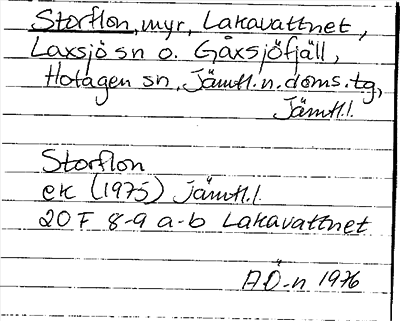 Storflon, myr, Lakavattnet,
Laxsjö sn o. Gåxsjöfjäll,
Hotagen sn, Jämtl. n. doms. tg,
Jämtl.l.
Storflon
ek (1975) Jämtl.l.
20 F 8-9 a-b Lakavattnet
AÖ-n 1976